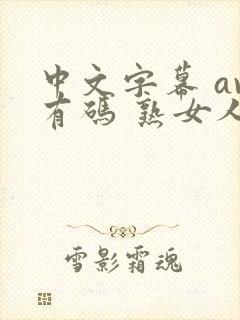 中文字幕 av
有碼 熟女人
雪影霜魂